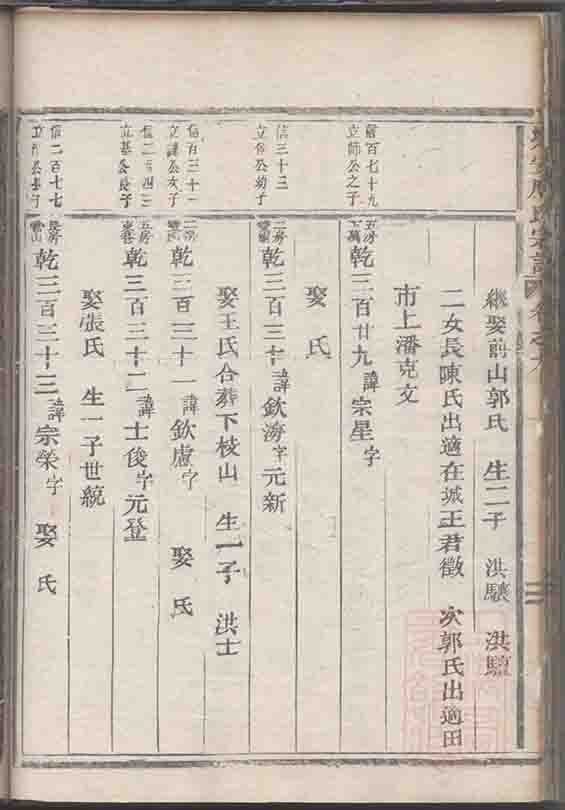 周氏宗譜
繼娶前山郭氏 生二子 洪驤 洪驢
二女長陳氏出適在城王君徵 次郭氏出適田
市上潘克文
信百七十九
立師公之子
五房
乾三百廿九諱宗星字
娶 氏
信三十三
立公幼子
二房
乾三百三十諱欽海字元新
娶王氏合葬下枝山 生一子 洪士
信百三十一
立謨公次子
二房
乾三百三十一諱欽慮字 娶 氏
信二百四三
立基公長子
五房
乾三百三十二諱士俊字元登
娶張氏 生一子世統
信二百七七
公子
長房
乾三百三十三諱宗榮字 娶 氏